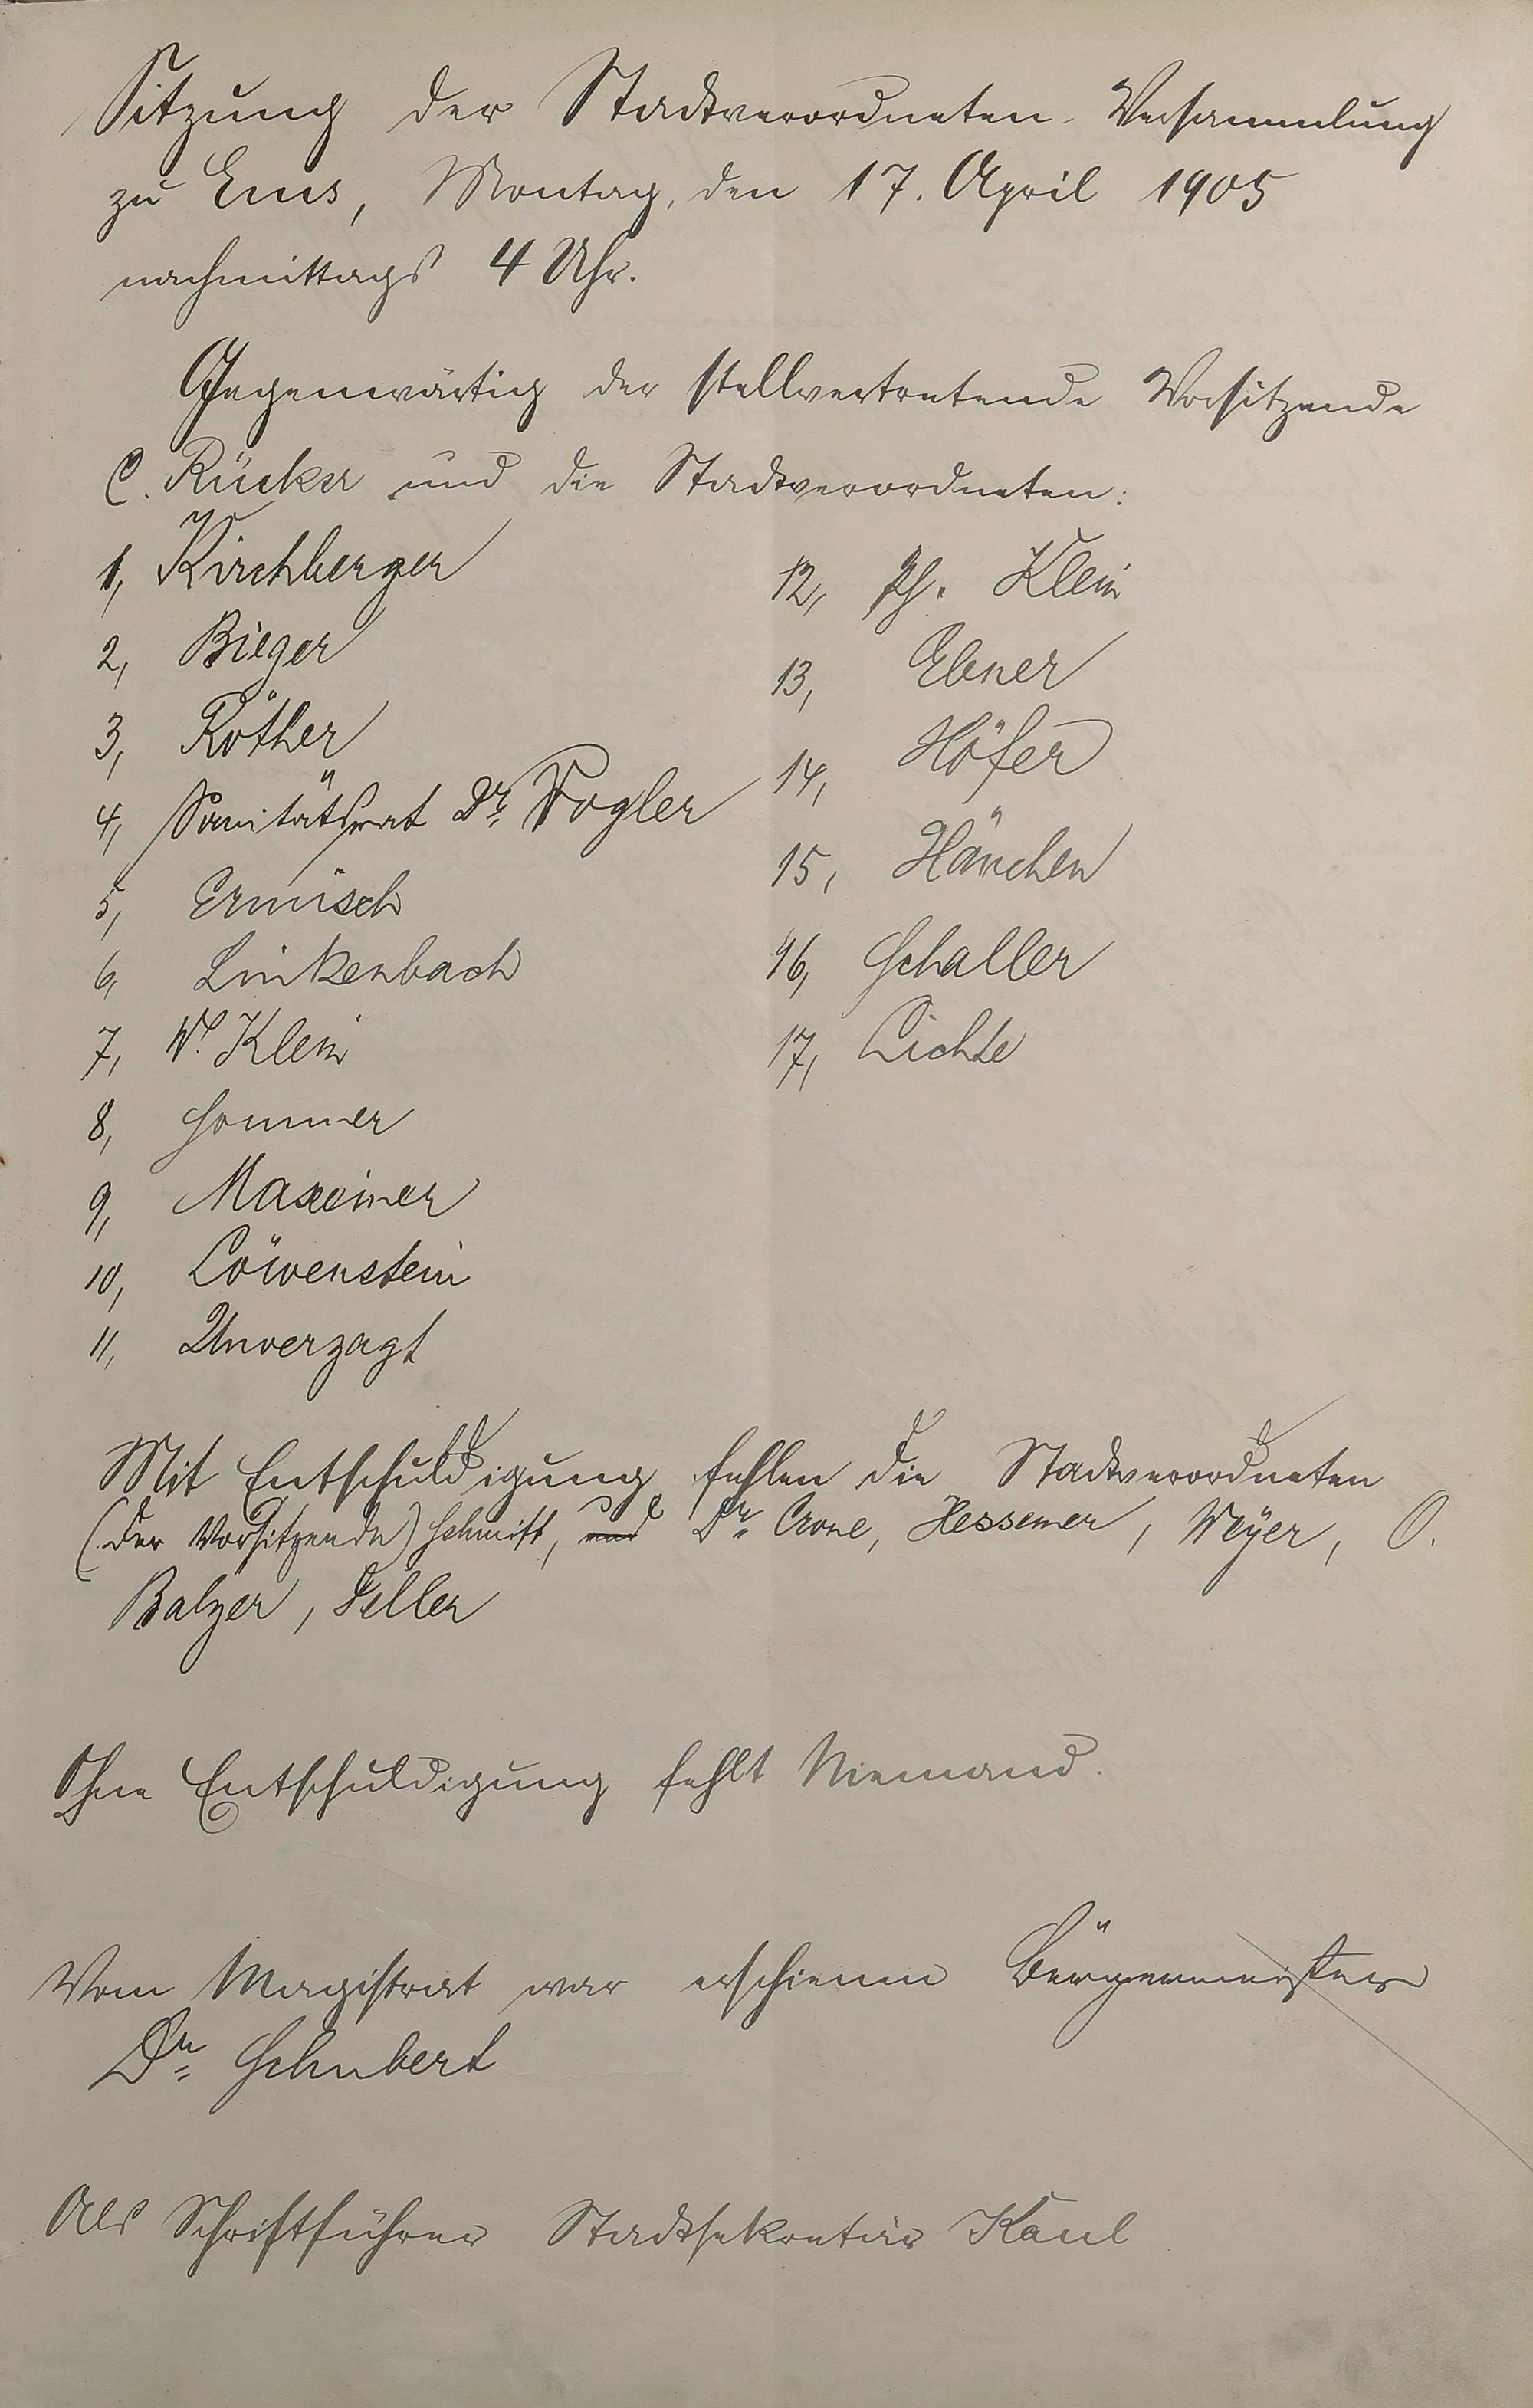 Sitzung der Stadtverordneten-Versammlung
zu Ems, Montag, den 17. April 1905
nachmittags 4 Uhr.
Gegenwärtig der stellvertretende Vorsitzende
C. Rücker und die Stadtverordneten:
1, Kirchberger
2, Bieger
3, Röther
4, Sanitätsrat Dr. Vogler
5, Ermisch
6, Linkenbach
7, W. Klein
8, Sommer
9, Maxeiner
10, Löwenstein
11, Unverzagt
12, Ph. Klein
13, Ebner
14, Höfer
15, Hänchen
16, Schaller
17, Lichte
Mit Entschuldigung fehlen die Stadtverordneten
(der Vorsitzende) Schmitt, und Dr. Crone, Hessemer, Weyer, O.
Balzer,
Ohne Entschuldigung fehlt Niemand.
Vom Magistrat war erschienen Bürgermeister
Dr. Schubert
Als Schriftführer Stadtsekretär Kaul